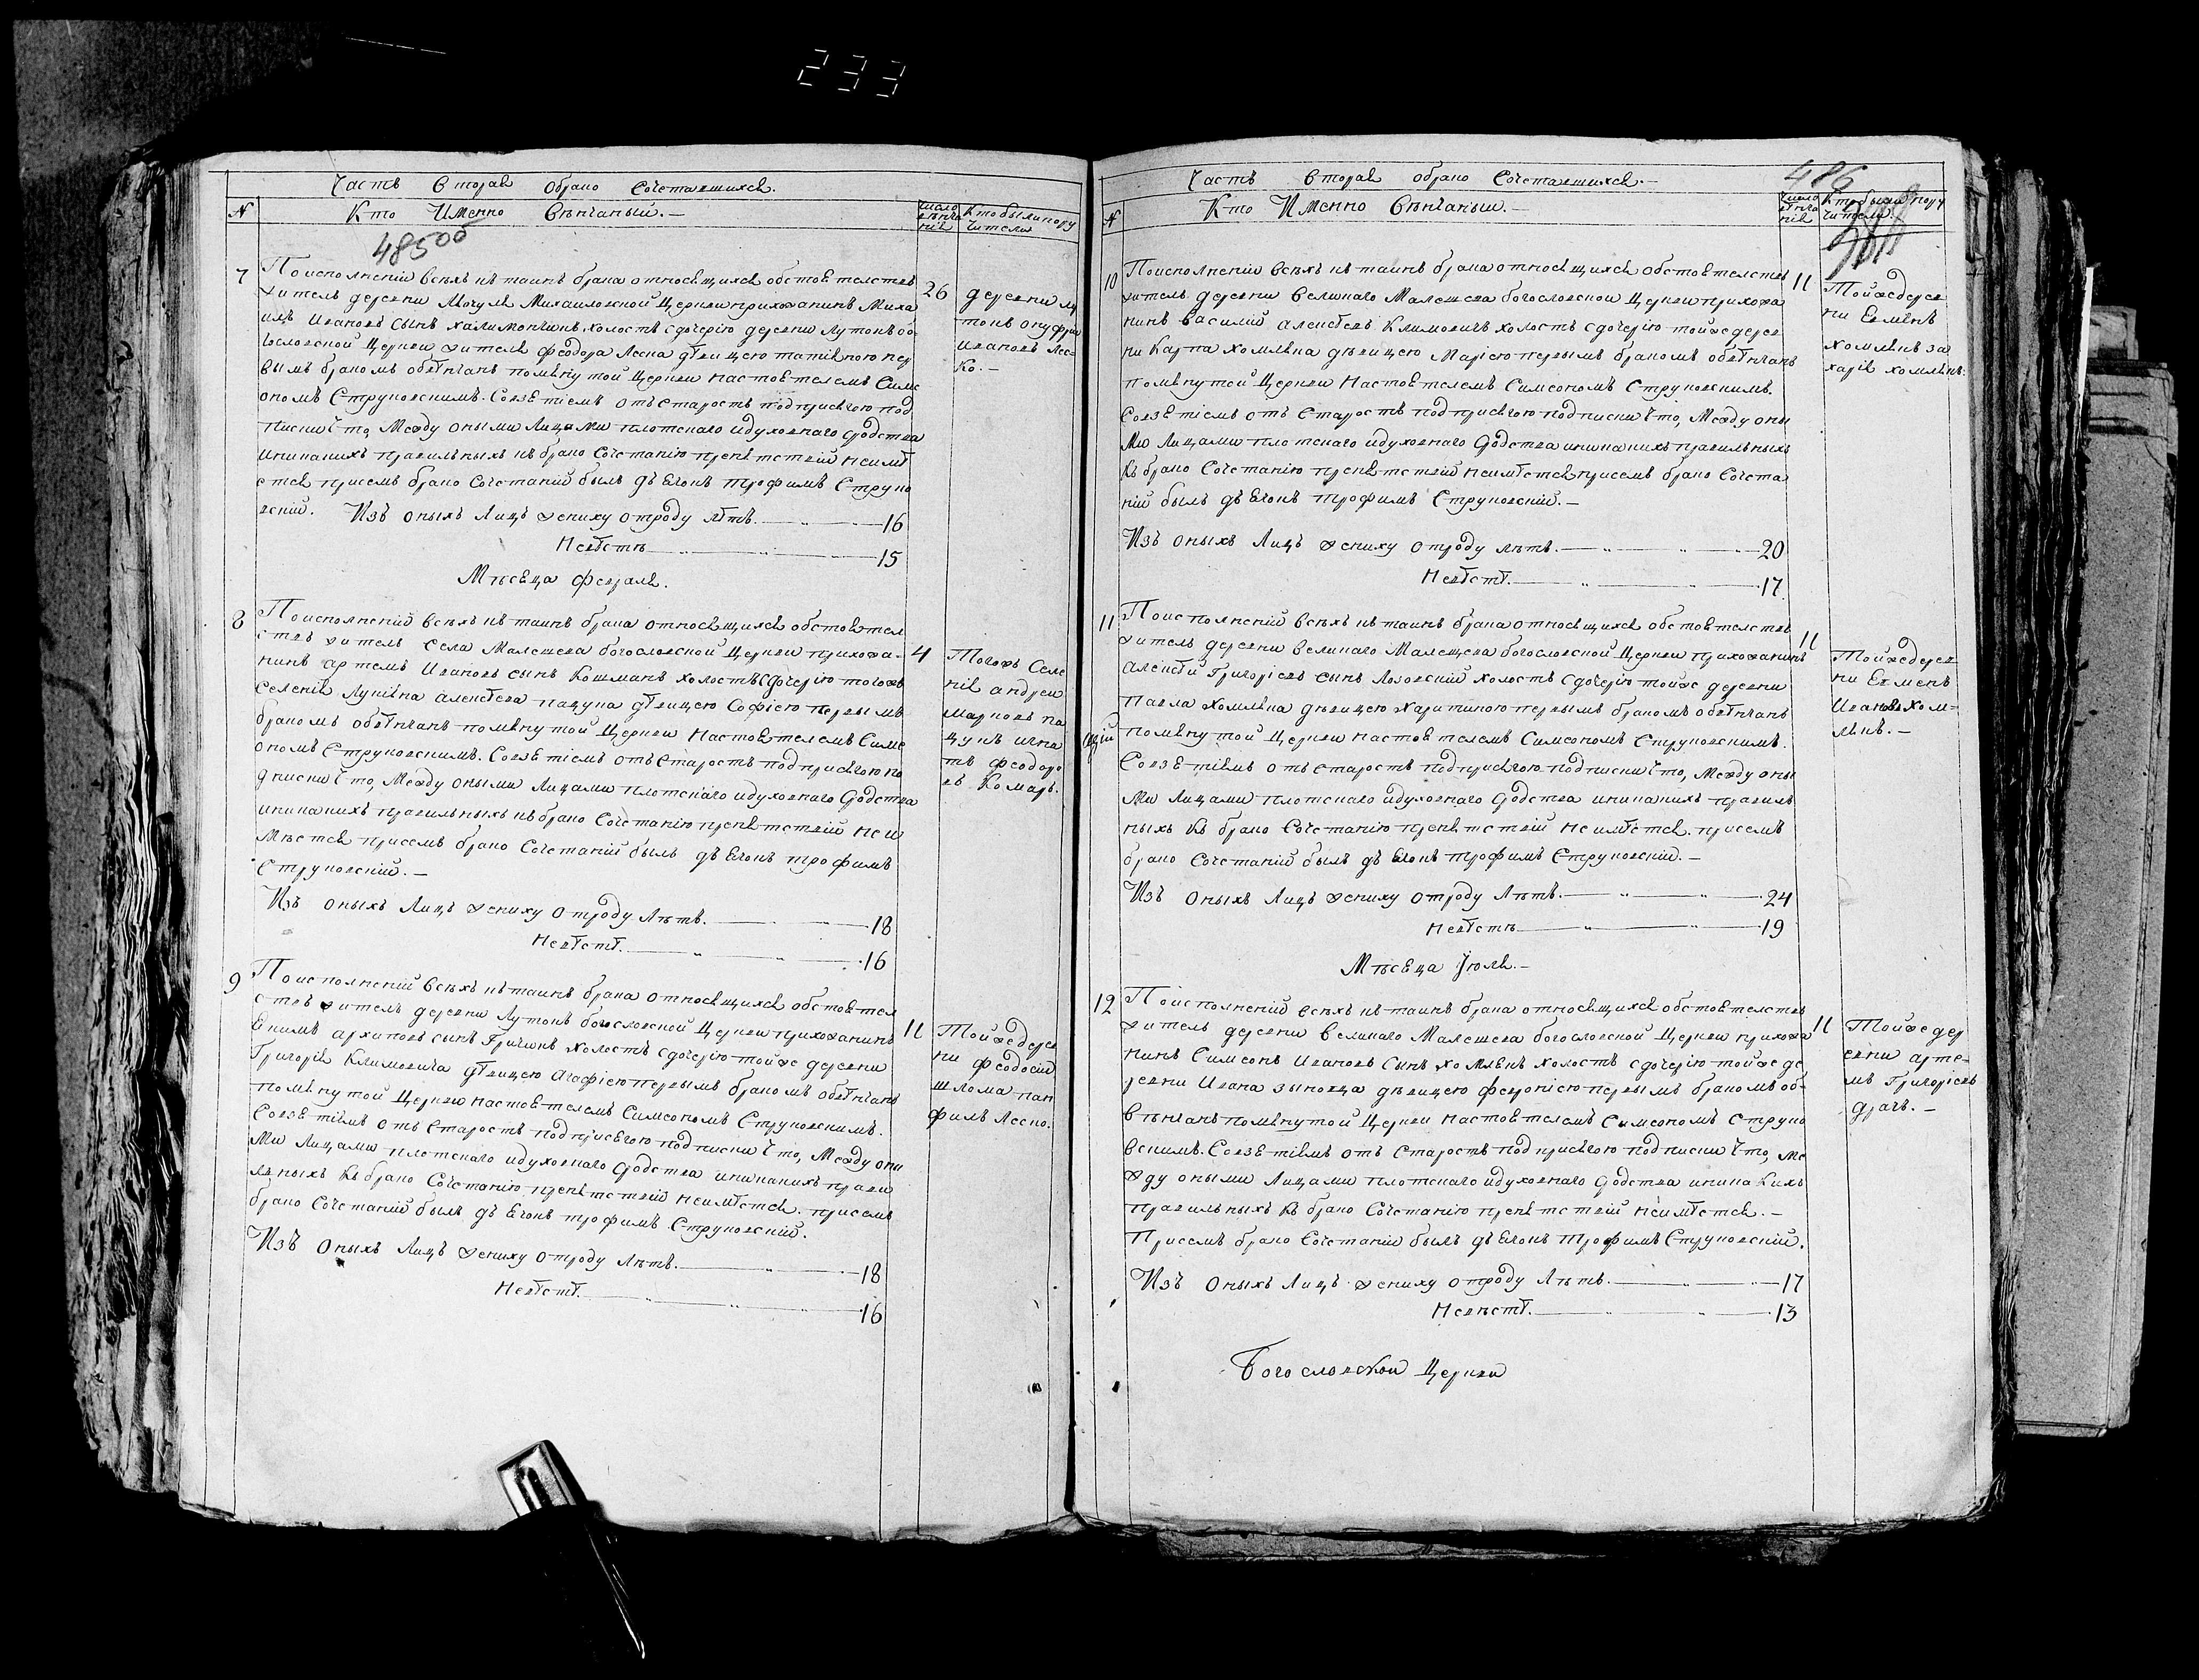 233
Часть Вторая обрано Сочетавшихся.
№ Кто Именно Вѣнчаный.— Число вѣнчанія Кто были поручители
485
7
Поисполненіи всѣхъ къ таинѣ брака относящихся обстоятелствъ
житель деревни Мочуля Михаиловской Церкви прихожанинъ Миха
илъ Ивановъ сынъ Халимончикъ, холостъ сдочерію деревни Лутокъ бо
гословской Церкви жителя Феодора Леска дѣвицею татіяною пер
вымъ бракомъ обвѣнчанъ помянутой Церкви Настоятелемъ Симе
ономъ Струковскимъ. Совзятіемъ отъ Старостъ подприсягою под
писки Что, Между оными Лицами плотскаго идуховнаго Сродства
иникакихъ правильныхъ кбрако Сочетанію препятствій неимѣ
ется присемъ брако Сочетаніи былъ дьячокъ трофимъ Струко
вскій. Изъ оныхъ Лицъ жениху отроду лѣтъ. 16
Невѣстѣ 15
26
деревни лу
токъ онуфрій
Ивановъ лес
ко.—
Мѣсяца февраля.
8
Поисполненіи всѣхъ къ таинѣ брака относящихся обстоятел
ствъ житель села Малешева богословской Церкви прихожа-
нинъ артемъ Ивановъ сынъ Кошманъ холостъ сдочерію тогожъ
селенія Лукіяна алексѣева пацука дѣвицею Софією первымъ
бракомъ обвѣнчанъ помянутой Церкви Настоятелемъ Симе
ономъ Струковскимъ. Совзятіемъ отъ Старостъ подприсягою по
дписки Что, Между оными Лицами плотскаго идуховнаго Сродства
иникакихъ правильныхъ кбрако Сочетанію препятствій неи
мѣется присемъ брако Сочетаніи былъ дьячокъ трофимъ
Струковскій.—
Изъ оныхъ Лицъ жениху отроду Лѣтъ. 18
Невѣстѣ. 16
4
Тогожъ Селе
нія андреи
Марковъ па
цукъ игна
тъ феодоро
въ Комаръ.
9
Поисполненіи всѣхъ къ таинѣ брака относящихся обстоятел
ствъ житель деревни Лутокъ богословской Церкви прихожанинъ
Екимъ архиповъ сынъ Гричикъ холостъ сдочерію тойже деревни
Григорія Климовича дѣвицею Агафією первымъ бракомъ обвѣнчанъ
помянутой Церкви настоятелемъ Симеономъ Струковскимъ.
Совзятіемъ отъ Старостъ подприсягою подписки Что, Между оны
Ми Лицами плотскаго идуховнаго Сродства иникакихъ прави
льныхъ къ брако Сочетанію препятствій неимѣется. присемъ
брако Сочетаніи былъ дьячокъ трофимъ Струковскій.
Изъ Оныхъ Лицъ жениху отроду Лѣтъ. 18
Невѣстѣ. 16
11
Тойжедерев
ни феодосій
шлома пан
филъ Леско.
486
Часть Вторая обрано Сочетавшихся.—
№ Кто Именно Вѣнчаныи.— Число вѣнчанія Кто были пору
чители.
10
Поисполненіи всѣхъ къ таинѣ брака относящихся обстоятелствъ
житель деревни Великаго Малешева богословской Церкви прихожа
нинъ Василій алексѣевъ Климовичъ холостъ сдочерію тойжедерев
ни Карпа хомяка дѣвицею Марією первымъ бракомъ обвѣнчанъ
помянутой Церкви Настоятелемъ Симеономъ Струковскимъ.
Совзятіемъ отъ Старостъ подприсягою подписки Что, Между оны
Ми Лицами плотскаго идуховнаго Сродства иникакихъ правильныхъ
къ брако Сочетанію препятствій неимѣется присемъ брако Сочета
ніи былъ дьячокъ трофимъ Струковскій.—
Изъ оныхъ Лицъ жениху отроду лѣтъ. 20
Невѣстѣ. 17
11
Тойжедерев
ни
хомякъ за
харія хомякъ.
11
Поисполненіи всѣхъ къ таинѣ брака относящихся обстоятелствъ
житель деревни великаго Малещева богословской Церкви прихожанинъ
Алексѣй Григоріевъ сынъ Лозовскій холостъ сдочерію тойже деревни
Павла хомяка дѣвицею Харитиною первымъ бракомъ обвѣнчанъ
помянутой Церкви настоятелемъ Симеономъ Струковскимъ.
Совзятіемъ отъ Старостъ подприсягою подписки Что, Между оны
Ми Лицами плотскаго идуховнаго Сродства иникакихъ правиль
ныхъ къ брако Сочетанію препятствій неимѣется. присемъ
брако Сочетаніи былъ дьячокъ трофимъ Струковскій.—
Изъ Оныхъ Лицъ жениху отроду Лѣтъ. 24
невѣстѣ 19
11
Тойжедерев
ни
Ивановъ хом-
якъ.—
Мѣсяца Іюля.—
12
Поисполненіи всѣхъ къ таинѣ брака относящихся обстоятелствъ
житель деревни Великаго Малешева богословской Церкви прихожа
нинъ Симеонъ Ивановъ Сынъ хомякъ холостъ сдочерію тойже де
ревни Ивана зыновца дѣвицею февронією первымъ бракомъ об-
вѣнчанъ помянутой Церкви настоятелемъ Симеономъ Струко
вскимъ. Совзятіемъ отъ Старостъ подприсягою подписки Что, Ме
жду оными Лицами плотскаго идуховнаго Сродства иникакихъ
правильныхъ къ брако Сочетанію препятствій неимѣется.—
Присемъ брако Сочетаніи былъ дьячокъ Трофимъ Струковскій.
Изъ Оныхъ Лицъ жениху отроду Лѣтъ. 17
Невѣстѣ. 13
11
Тойже дер
евни арте-
мъ Григоріевъ
драчъ.—
Богословской Церкви